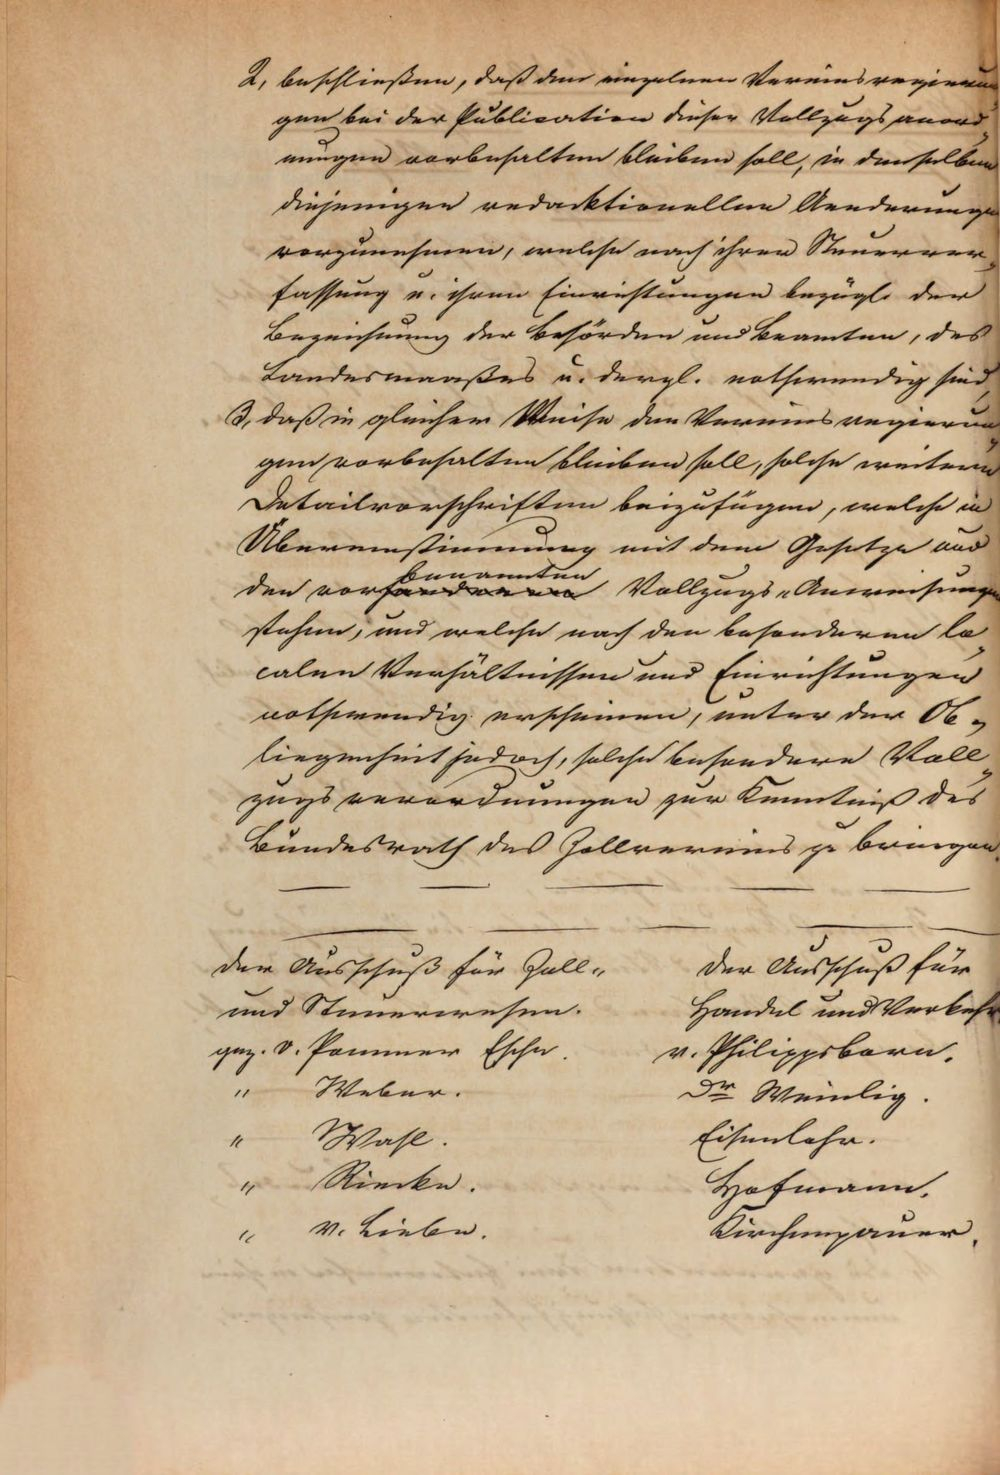 2, beschließen, daß den einzelnen Vereinsregierun
gen bei der Publication dieser Vollzugsanord„
nungen vorbehalten bleiben soll, in denselben
diejenigen redacktionellen Aenderungen
vorzunehmen, welche nach ihrer Steuerver„
fassung u. ihren Einrichtungen bezügl. der
Bezeichnung der Behörden und Beamten, des
Landesmaaßes u. dergl. nothwendig sind,
3, daß in gleicher Weise den Vereinsregierun„
gen vorbehalten bleiben soll, solche weitern
Detailvorschriften beizufügen, welche in
Übereinstimmung mit dem Gesetze und
benannten
den vorhandenen Vollzugs-Anweisungen
stehen, und welche nach den besonderen lo„
calen Verhältnissen und Einrichtungen
nothwendig erscheinen, unter der Ob„
liegenheit jedoch, solche besondere Voll„
zugsverordnungen zur Kenntniß des
Bundesrath des Zollvereins zu bringen.
Der Ausschuß für Zoll„
und Steuerwesen.
gez. v. Pommer Esche.
" Weber.
" Wahl.
" Riecke.
" v. Liebe.
Der Ausschuß für
Handel und Verkehr
v. Philippsborn.
Dr Weinlig.
Eisenlohr.
Hofmann.
Kirchenpauer.